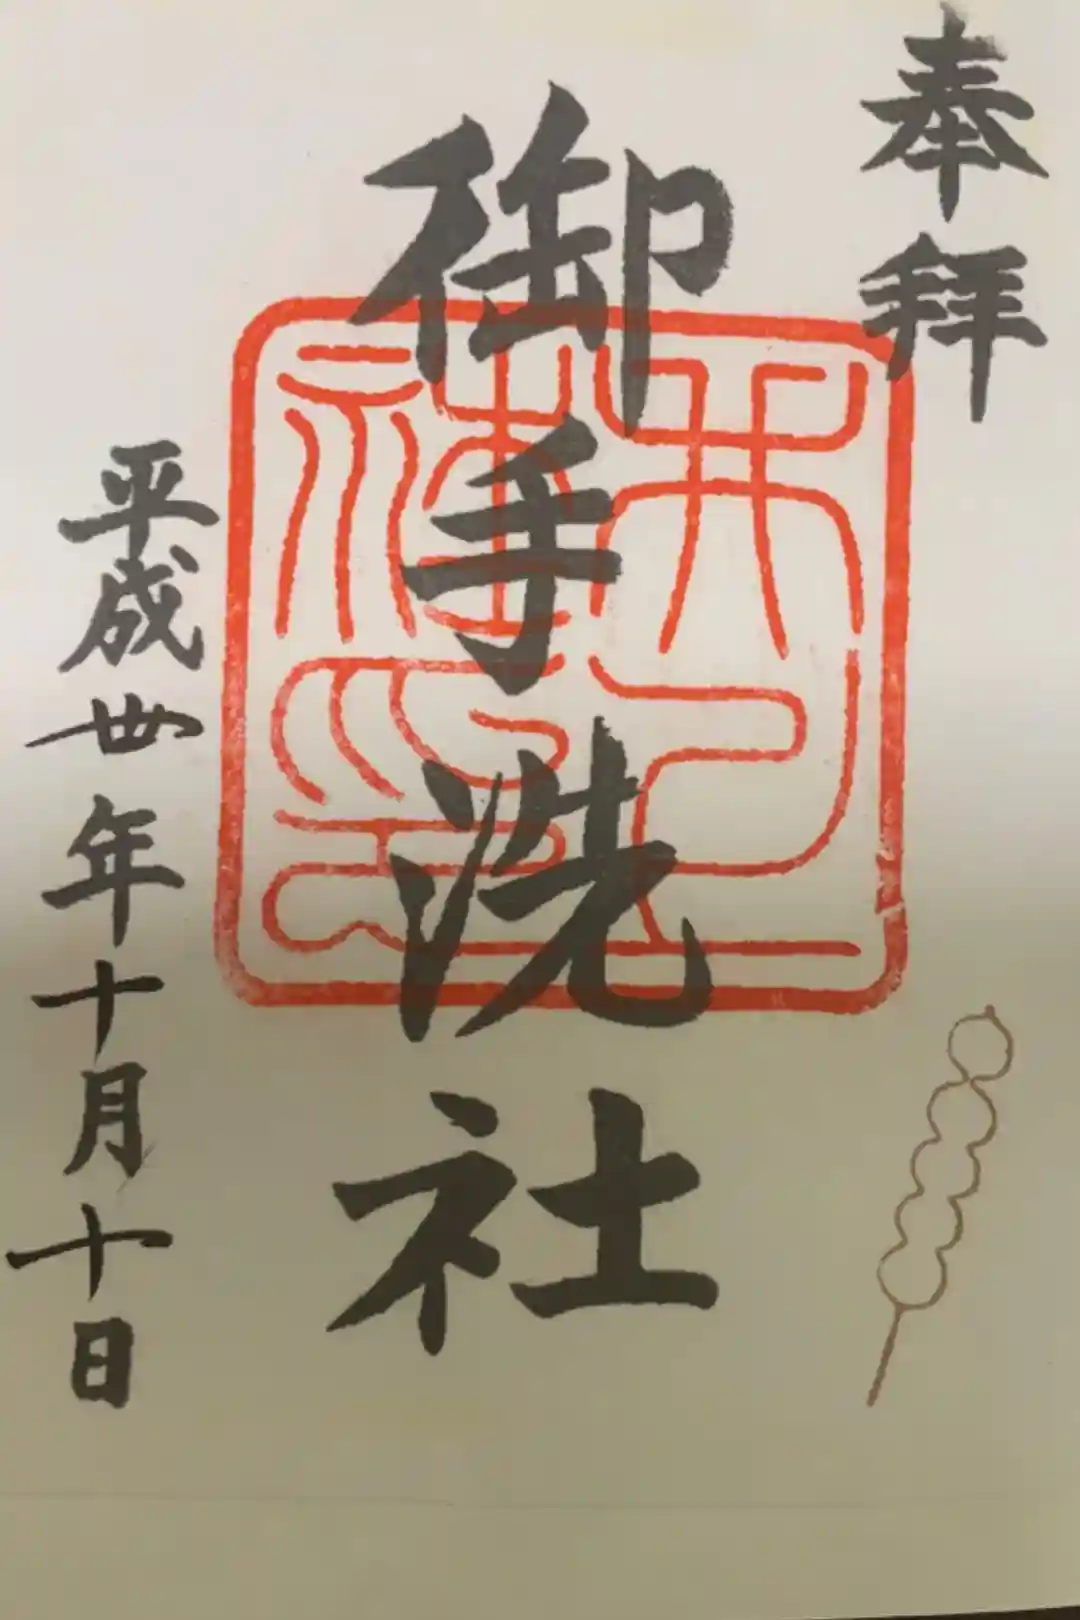 奉拝
御手洗社
平成卅年十月十日